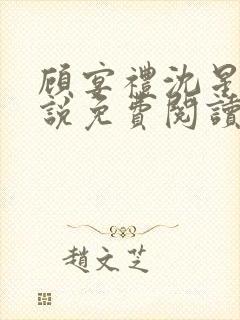 顾宴禮沈星
說免費閱讀
趙文芝